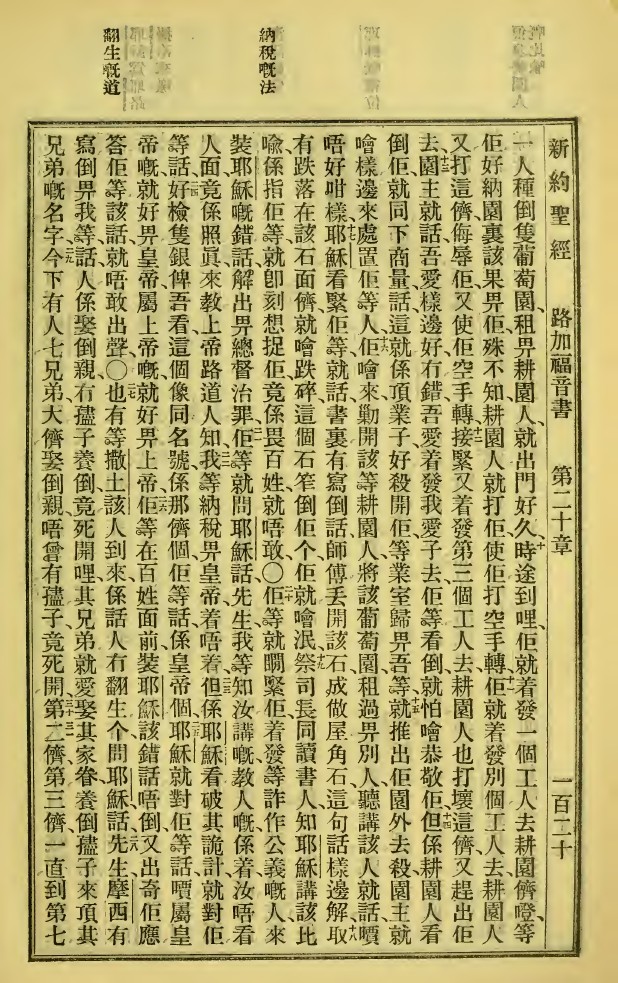 新約聖經 路加福音書 第二十章 一百二十
納稅嘅法
翻生嘅道
一人種倒隻葡萄園、租畀耕園人、就出門好久、十時途到哩、佢就着發一個工人去耕園儕噔、等
佢好納園裏該果畀佢殊不知耕園人就打佢使佢打空手轉十一佢就着發別個工人去耕園人
又打這儕侮辱佢又使佢空手轉十二接緊又着發第三個工人去耕園人也打壞這儕又趕出佢
去十三園主就話吾愛樣邊好冇錯吾愛着發我愛子去佢等看倒就怕噲恭敬佢十四但係耕園人看
倒佢、就同下商量話、這就係頂業子好殺開佢、等業室歸畀吾等十五就推出佢園外去殺園主就
噲樣邊來處置佢等人十六佢噲來勦開該等耕園人將該葡萄園租過畀別人、聽講該人就話嘳
唔好咁樣、十七耶穌看緊佢等就話書裏有寫倒話師傅丟開該石成做屋角石這句話樣邊解十八取
有跌落在該石面儕就噲跌碎、這個石笮倒佢个佢就噲泯、十九祭司長同讀書人知耶穌講該比
喩係指佢等就卽刻想捉佢竟係畏百姓就唔敢〇二十佢等就瞯緊佢着發等詐作公義嘅人、來
裝耶穌嘅錯話、解出畀總督治罪二一佢等就問耶穌話先生我等知汝講嘅教人嘅係着汝唔看
人面竟係照眞來教上帝路道人知二二我等納稅畀皇帝着唔着二三但係耶穌看破其詭計就對佢
等話二四好檢隻銀俾吾看這個像同名號係那儕個佢等話係皇帝個二五耶穌就對佢等話嘳屬皇
帝嘅就好畀皇帝、屬上帝嘅就好畀上帝二六佢等在百姓面前裝耶穌該錯話唔倒又出奇佢應
答佢等該話就唔敢出聲〇二七也有等撒土該人到來係話人冇翻生个問耶穌話二八先生摩西有
寫倒畀我等話人係娶倒親、冇孻子養倒竟死開哩其兄弟就愛娶其家眷養倒孻子來頂其
兄弟嘅名字、二九今下有人七兄弟大儕娶倒親、唔曾有孻子竟死開、三十第二儕、三一第三儕一直到第七